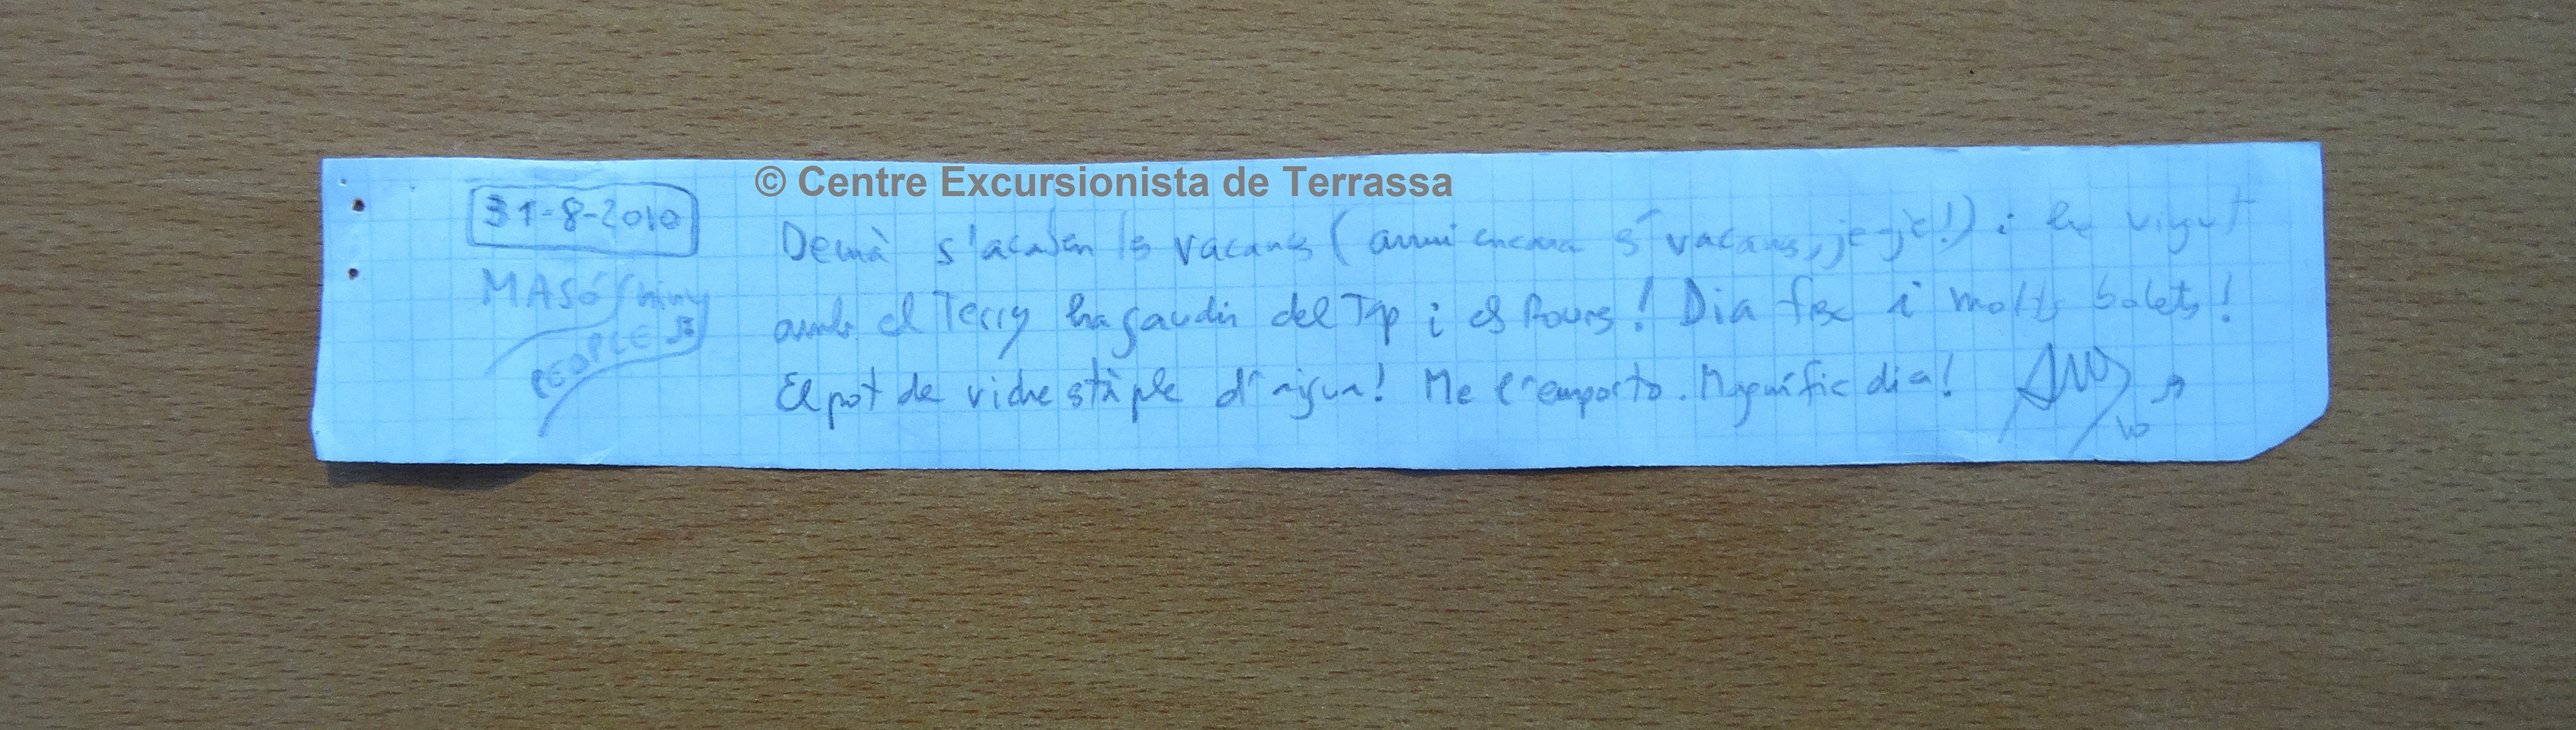 © Centre Excursionista de Terrassa
31-8-2010
MASÓ
PEOPLE
Demà s'acaben les vacances ( encara vacances, je-je!) i he vingut
amb el Terry ha gaudir del Top i els Pous! Dia fresc i molts bolets!
El pot de vidre està ple d'aigua! Me l'emporto. Magnífic dia!